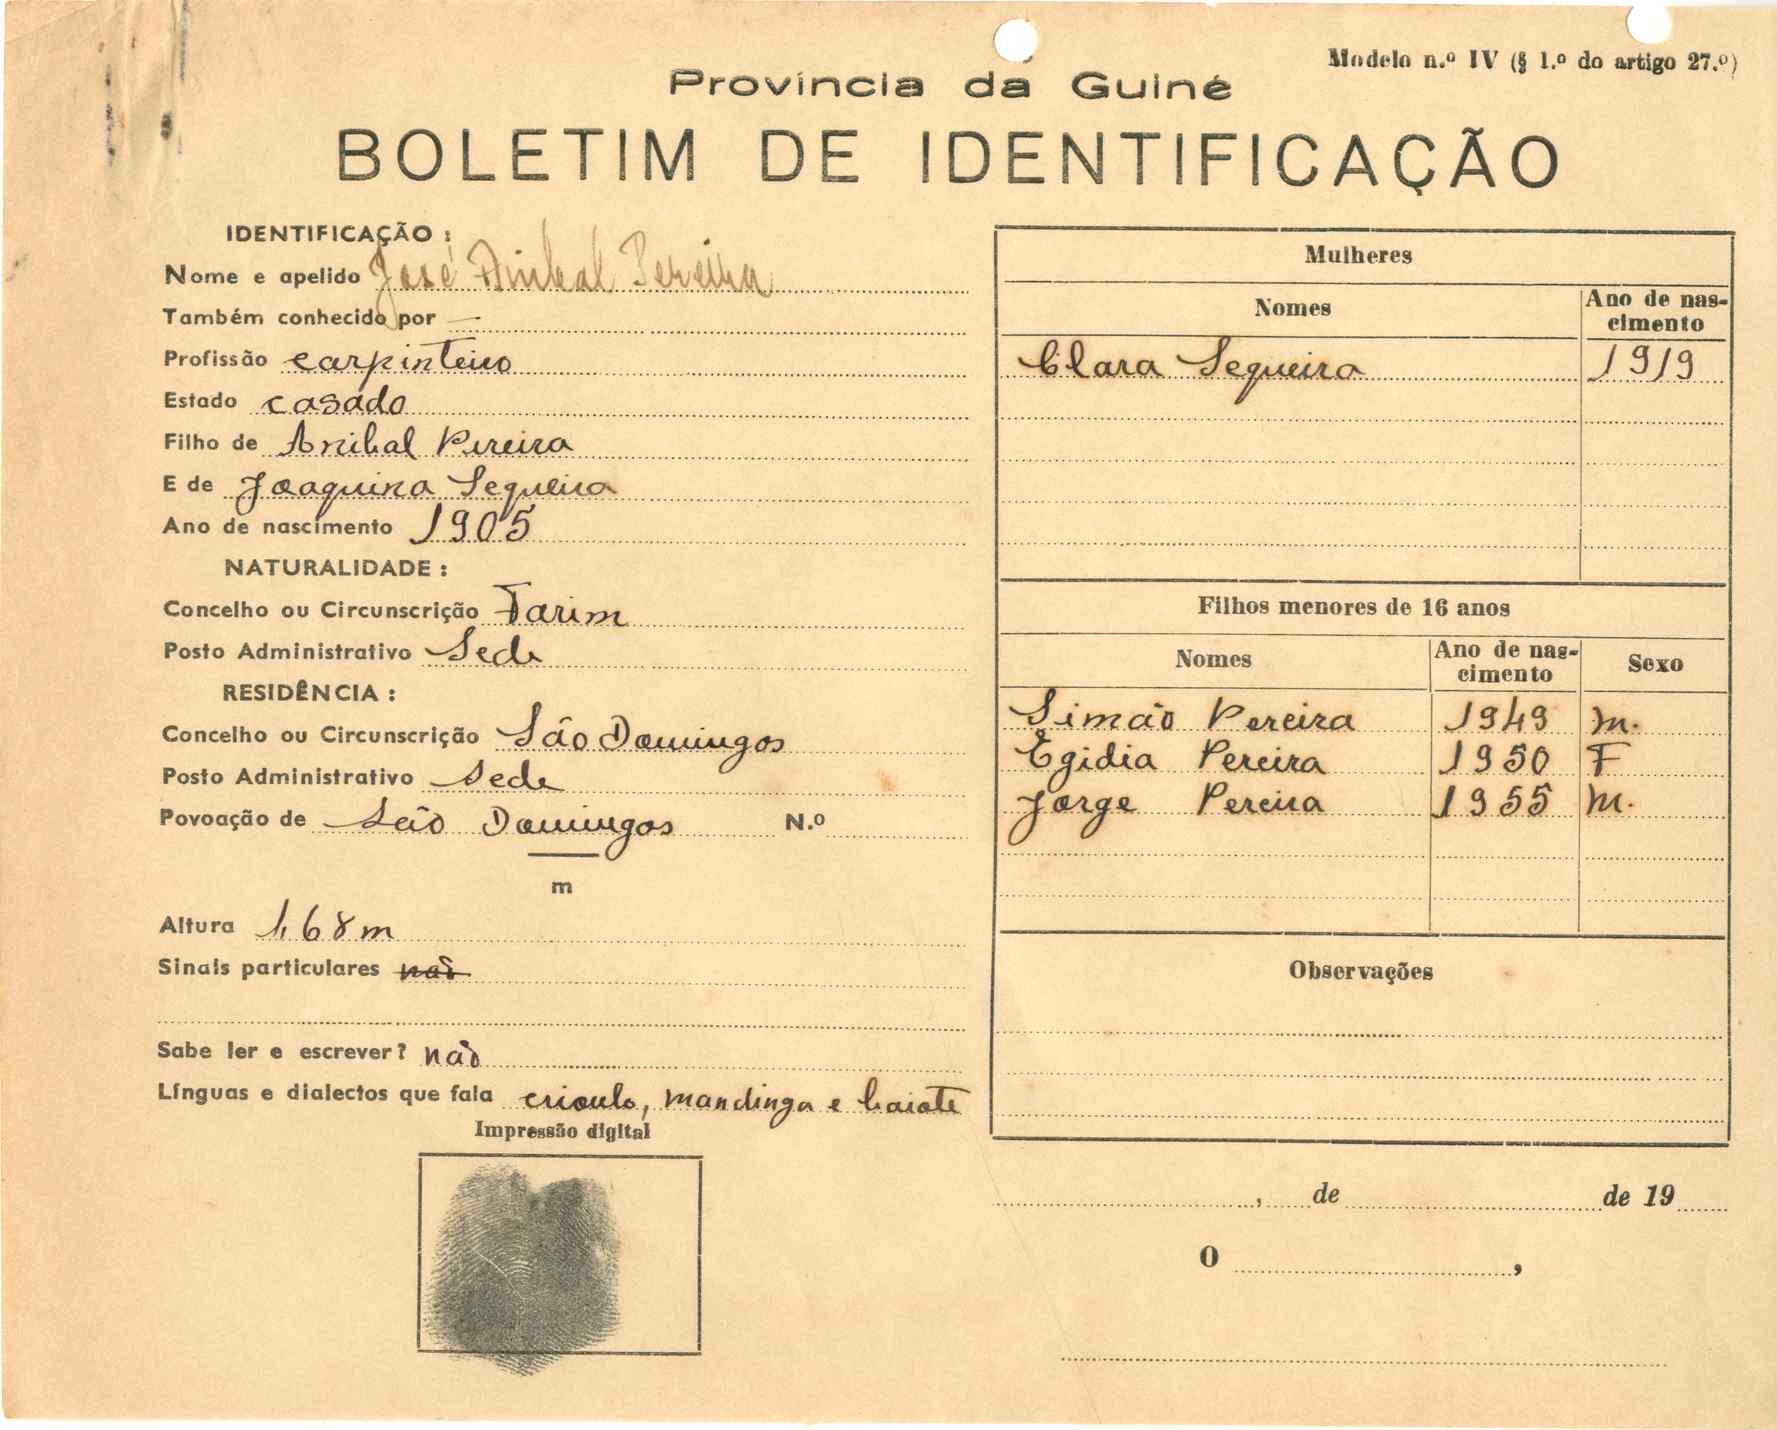 Modelo n.º IV (§ 1.º do artigo 27.º)
Província da Guiné
BOLETIM DE IDENTIFICAÇÃO
IDENTIFICAÇÃO :
Nome e apelido José Anibal Pereira
Também conhecido por —
Profissão carpinteiro
Estado casado
Filho de Anibal Pereira
E de Joaquina Sequeira
Ano de nascimento 1905
NATURALIDADE :
Concelho ou Circunscrição Farim
Posto Administrativo Sede
RESIDÊNCIA :
Concelho ou Circunscrição São Domingos
Posto Administrativo Sede
Povoação de São Domingos N.º
m
Altura 1,68 m
Sinais particulares não
Sabe ler e escrever? não
Línguas e dialectos que fala crioulo, mandinga e baiote
Impressão digital
Mulheres
Nomes Ano de nas-
cimento
Clara Sequeira 1919
Filhos menores de 16 anos
Nomes Ano de nas-
cimento Sexo
Simão Pereira 1949 m.
Egidia Pereira 1950 F
Jorge Pereira 1955 m.
Observações
, de de 19
O ,